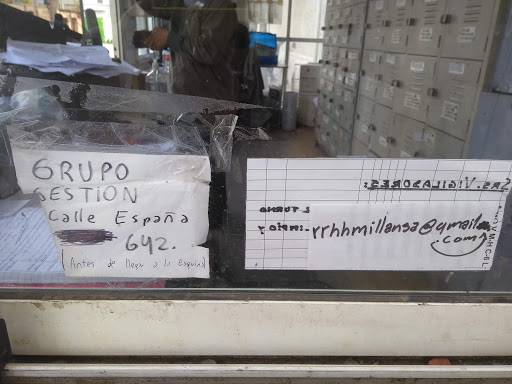 GRUPO
GESTION
Calle España
642.
(Antes de llegar a la Esquina)
SRS. VIGILADORES:
EL TURNO
LIMPIO Y
rrhhmillansa@gmail
.com